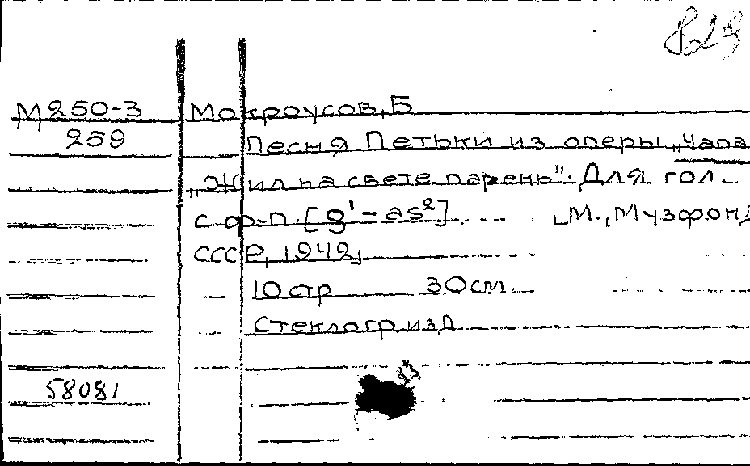 М250-3 Мокроусов, Б
259
Песня Петьки из оперы „Чапа
„Жил на свете парень". Для гол.
с ф-п. [g¹-as²] М., Музфонд
СССР, 1942,
10 стр 30 см
Стеклогр изд
58081